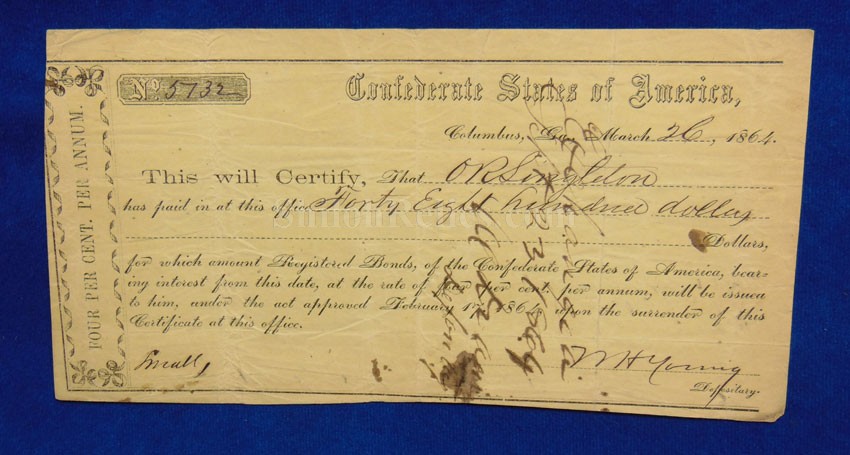 No 5732
Confederate States of America,
Columbus, Ga., March 26, 1864.
This will Certify, That O R Singleton
has paid in at this office Forty Eight hundred dollars
Dollars,
for which amount Registered Bonds, of the Confederate States of America, bear-
ing interest from this date, at the rate of four per cent. per annum, will be issued
to him, under the act approved February 17, 1864, upon the surrender of this
Certificate at this office.
W H Young
Depositary.
FOUR PER CENT. PER ANNUM.